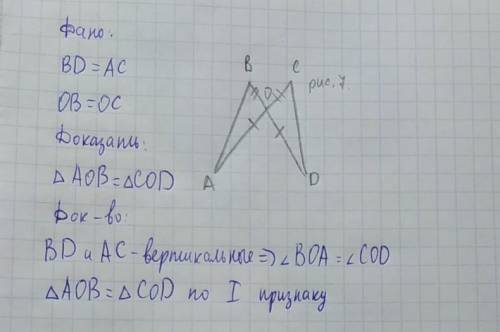 Дано:
BD = AC
OB = OC
Доказать:
△AOB = △COD
Док-во:
BD и AC - вертикальные => ∠BOA = ∠COD
△AOB = △COD по I признаку
B C
O
рис. 7
A D